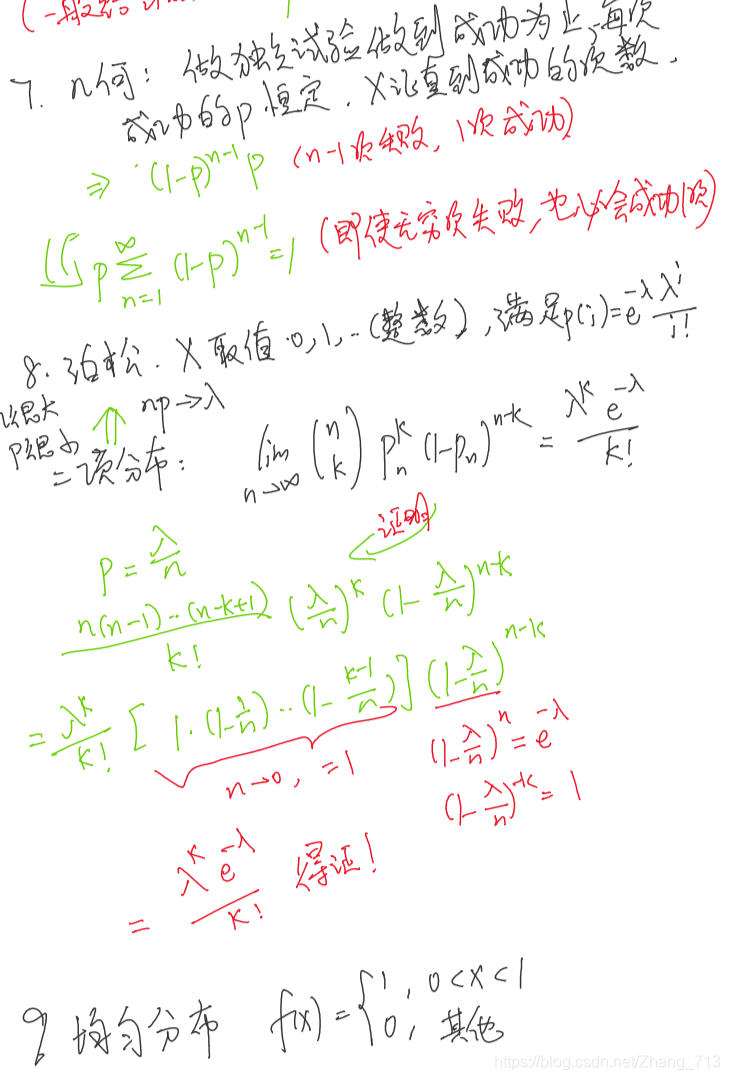 (一般
7. 几何：做独立试验做到成功为止,每次
成功的p恒定. X记直到成功的次数.
⇒ (1-p)^{n-1} p (n-1次失败, 1次成功)
p \sum_{n=1}^{∞} (1-p)^{n-1} = 1 (即使无穷次失败,也必会成功1次)
8. 泊松. X取值0,1,..(整数),满足p(i)=e^{-λ} \frac{λ^i}{i!}
n很大
p很小 ⇑ np→λ
二项分布: \lim_{n→∞} \binom{n}{k} p_n^k (1-p_n)^{n-k} = \frac{λ^k e^{-λ}}{k!}
证明
p = \frac{λ}{n}
\frac{n(n-1)..(n-k+1)}{k!} (\frac{λ}{n})^k (1-\frac{λ}{n})^{n-k}
= \frac{λ^k}{k!} [1·(1-\frac{1}{n})..(1-\frac{k-1}{n})] (1-\frac{λ}{n})^{n-k}
n→0, =1
(1-\frac{λ}{n})^n = e^{-λ}
(1-\frac{λ}{n})^{-k} = 1
= \frac{λ^k e^{-λ}}{k!} 得证!
9 均匀分布 f(x) = { 1, 0<x<1
0, 其他
https://blog.csdn.net/Zhang_713